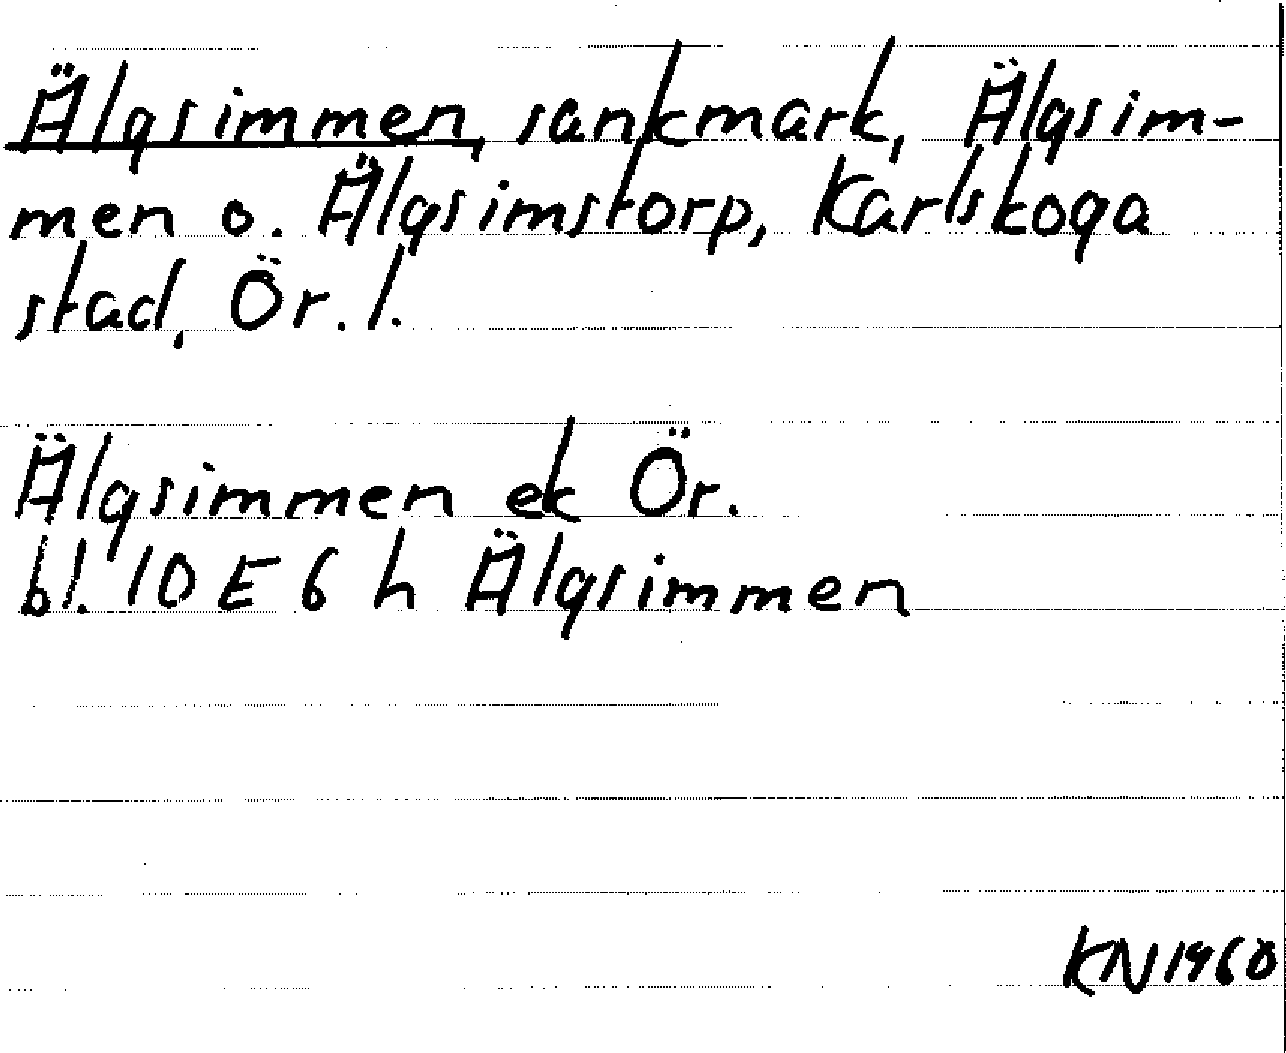 Älgsimmen, sankmark, Älgsim-
men o. Älgsimstorp, Karlskoga
stad, Ör. l.
Älgsimmen ek Ör.
bl. 10 E 6 h Älgsimmen
KN 1960